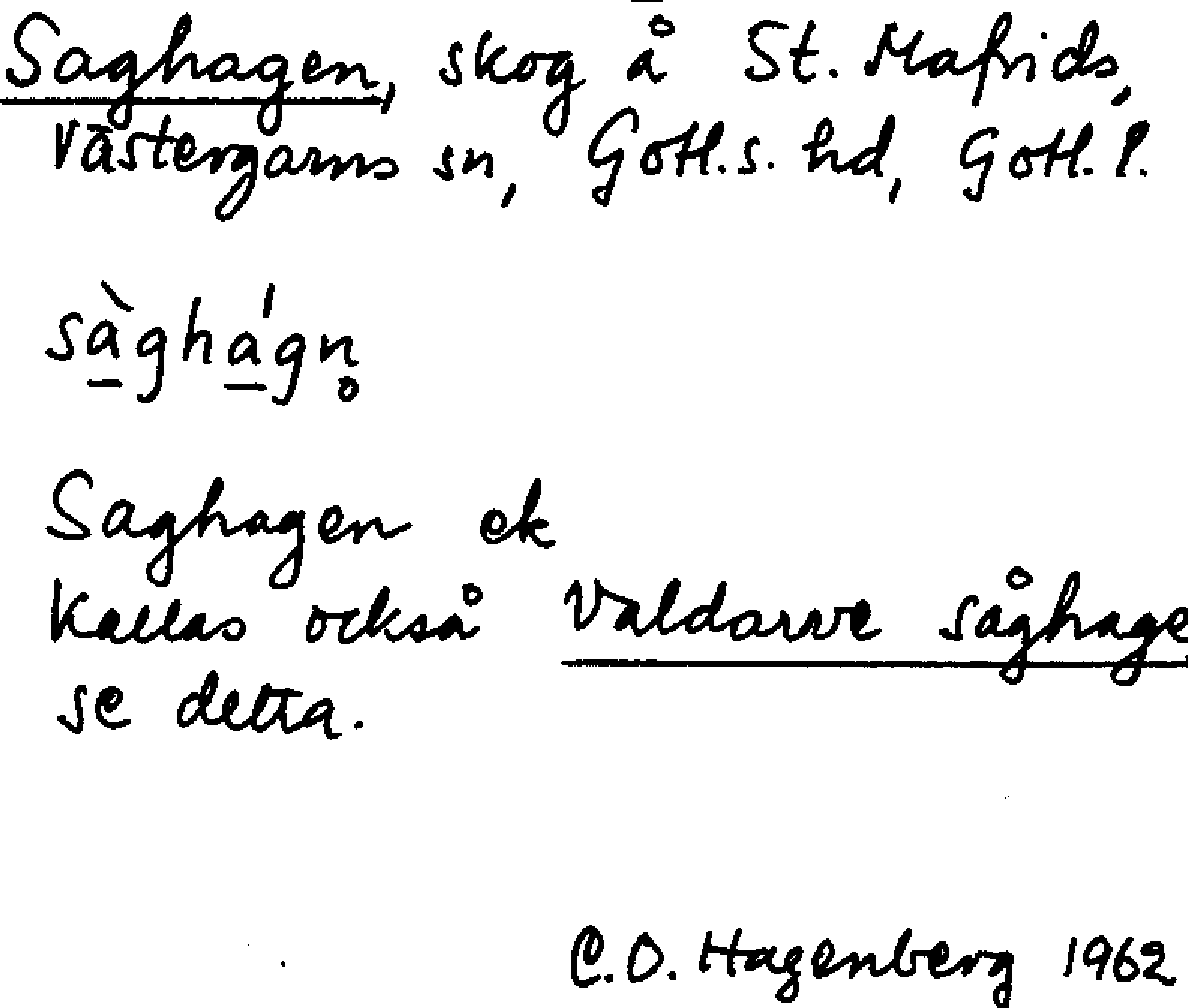 Saghagen, skog å St. Mafrids,
Västergarns sn, Gotl.s. hd, Gotl. l.
sà̱ghá̱gn̥
Saghagen ek
Kallas också Valdarve såghage
se detta.
C.O. Hagenberg 1962